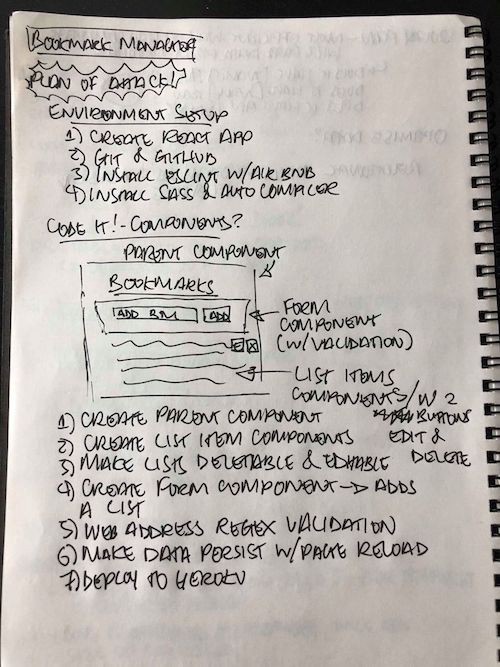 BOOKMARK MANAGER
PLAN OF ATTACK!?
ENVIRONMENT SETUP
1) CREATE REACT APP
2) GIT & GITHUB
3) INSTALL ESLINT W/AIR BNB
4) INSTALL SASS & AUTO COMPILER
CODE IT! - COMPONENTS?
PARENT COMPONENT
BOOKMARKS
ADD BM ADD
FORM
COMPONENT
(W/VALIDATION)
X
LIST ITEMS
COMPONENTS/W 2
BUTTONS
EDIT &
DELETE
1) CREATE PARENT COMPONENT
2) CREATE LIST ITEM COMPONENTS
3) MAKE LISTS DELETABLE & EDITABLE
4) CREATE FORM COMPONENT -> ADDS
A LIST
5) WEB ADDRESS REGEX VALIDATION
6) MAKE DATA PERSIST W/PAGE RELOAD
7) DEPLOY TO HEROKU